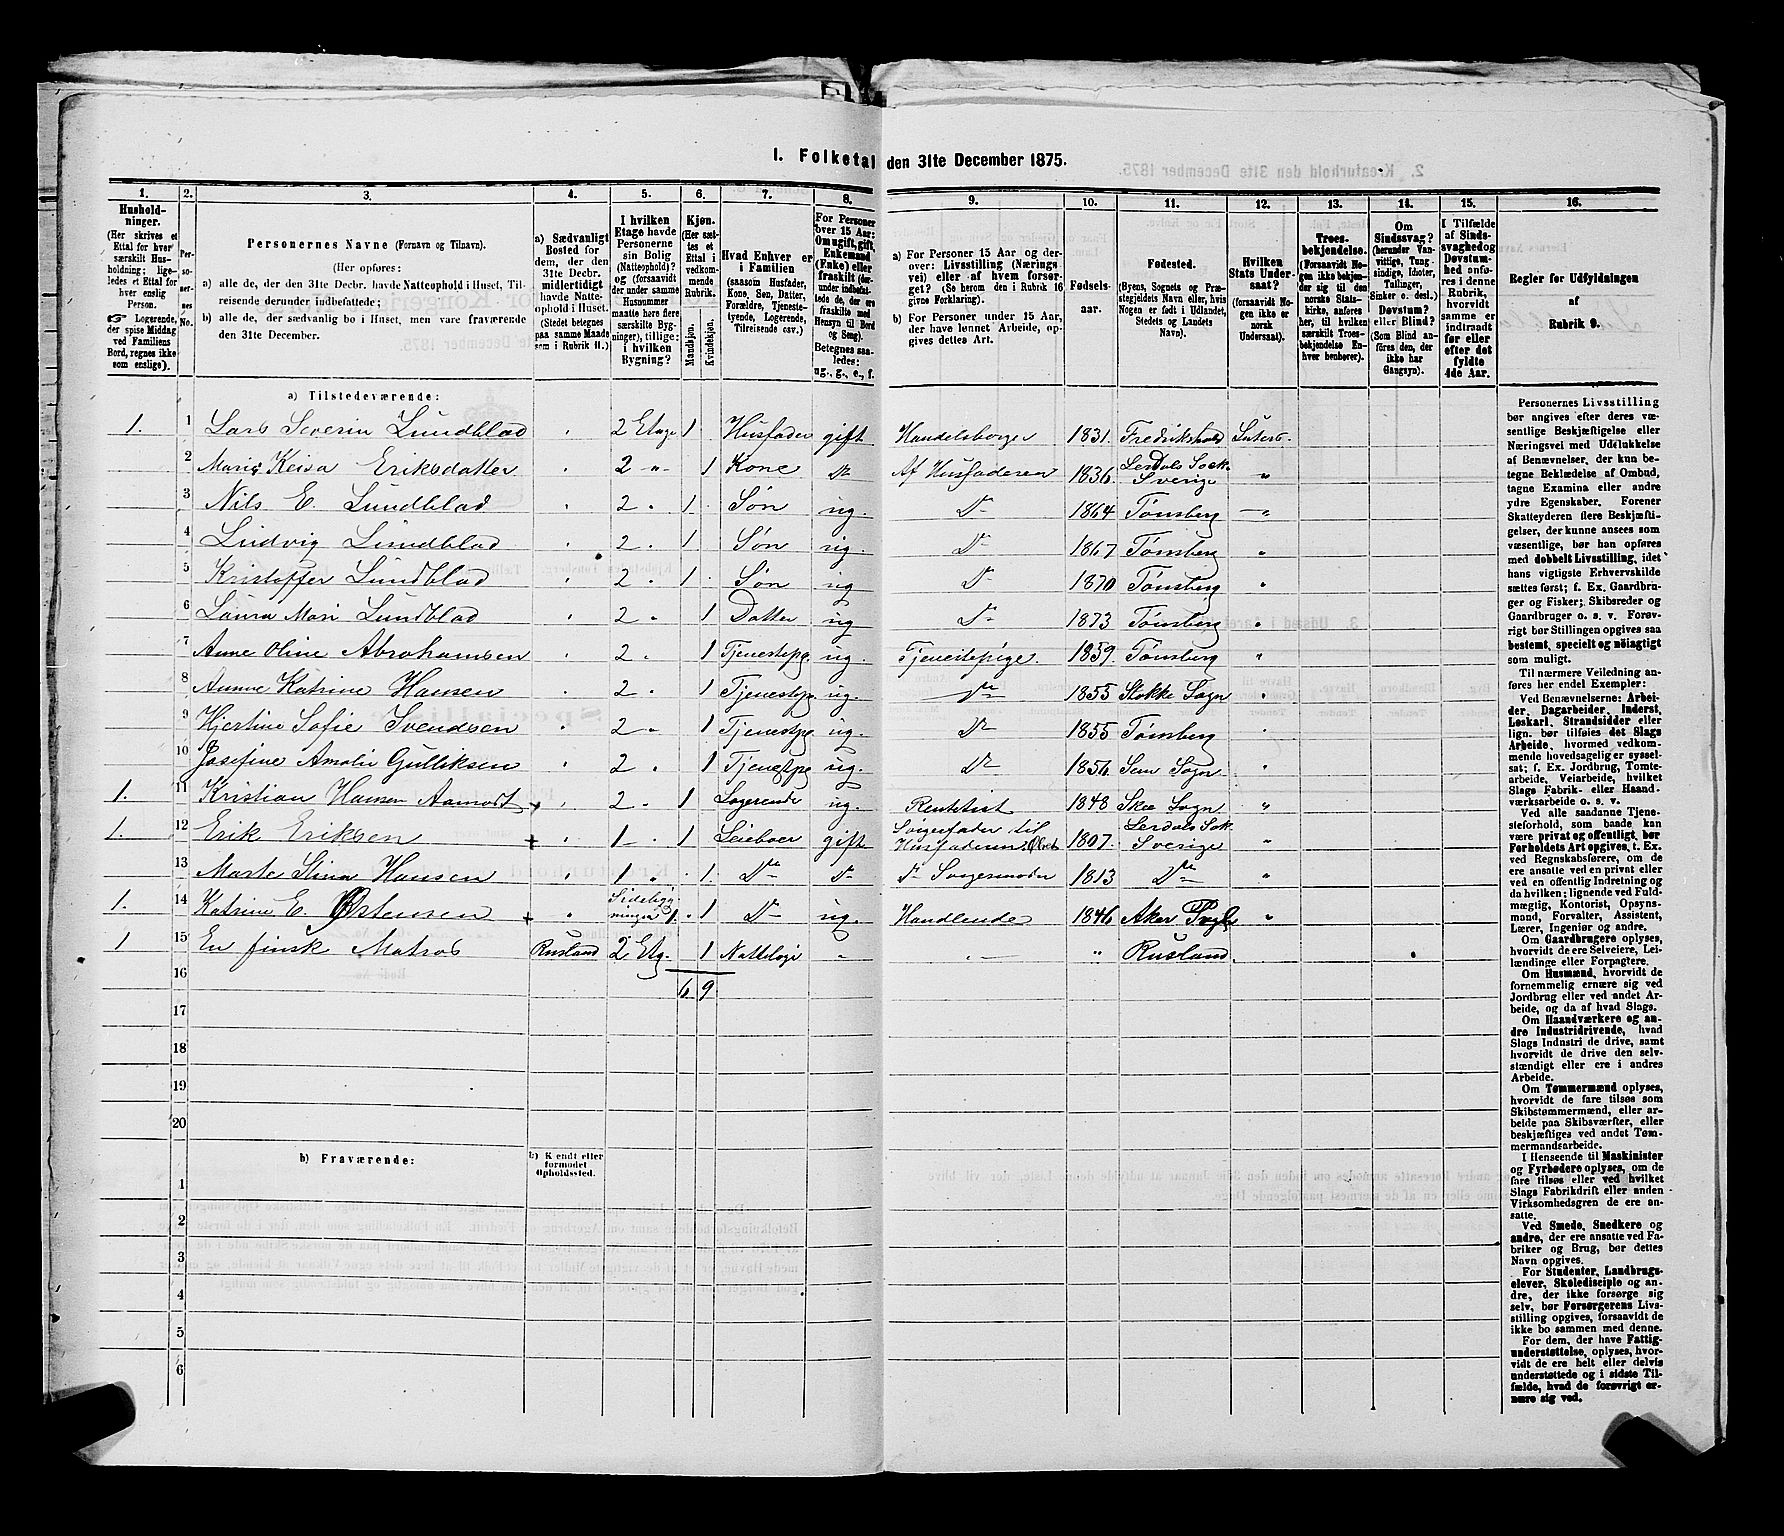 I. Folketal den 31te December 1875.
1. 2. 3. 4. 5. 6. 7. 8. 9. 10. 11. 12. 13. 14. 15. 16.
Hushold-
ninger.
(Her skrives et
Ettal for hver
særskilt Hus-
holdning; lige-
ledes et Ettal
for hver enslig
Person.
☞ Logerende,
der spise Middag
ved Familiens
Bord, regnes ikke
som enslige).
Per-
so-
ner-
nes
No.
Personernes Navne (Fornavn og Tilnavn).
(Her opføres:
a) alle de, der den 31te Decbr. havde Natteophold i Huset, Til-
reisende derunder indbefattede;
b) alle de, der sædvanlig bo i Huset, men vare fraværende
den 31te December.
a) Sædvanligt
Bosted for
dem, der den
31te Decbr.
midlertidigt
havde Natte-
ophold i Huset.
(Stedet betegnes
paa samme Maade
som i Rubrik 11.)
I hvilken
Etage havde
Personerne
sin Bolig
(Natteophold)?
og (forsaavidt
der under samme
Husnummer
maatte høre flere
særskilte Byg-
ninger), tillige:
i hvilken
Bygning?
Kjøn.
(Her sæt-
tes et
Ettal i
vedkom-
mende
Rubrik.
Mandkjøn.
Kvindekjøn.
Hvad Enhver er
i Familien
(saasom Husfader,
Kone, Søn, Datter,
Forældre, Tjeneste-
tyende, Logerende,
Tilreisende osv.)
For Personer
over 15 Aar:
Om ugift, gift,
Enkemand
(Enke) eller
fraskilt (der-
under indbefat-
tede de, der ere
fraskilte med
Hensyn til Bord
og Seng).
Betegnes saa-
ledes:
ug., g., e., f.
a) For Personer 15 Aar og der-
over: Livsstilling (Nærings-
vei) eller af hvem forsør-
get? (Se herom den i Rubrik 16
givne Forklaring).
b) For Personer under 15 Aar,
der have lønnet Arbeide, op-
gives dettes Art.
Fødsels-
aar.
Fødested.
(Byens, Sognets og Præ-
stegjeldets Navn eller, hvis
Nogen er født i Udlandet,
Stedets og Landets
Navn).
Hvilken
Stats Under-
saat?
(forsaavidt No-
gen ikke er
norsk
Undersaat).
Troes-
bekjendelse.
(Forsaavidt No-
gen ikke bekjen-
der sig til den
norske Stats-
kirke, anføres
her, til hvilken
særskilt Troes-
bekjendelse En-
hver henhører).
Om
Sindssvag?
(herunder Van-
vittige, Tung-
sindige, Idioter,
Tullinger,
Sinker o. desl.)
Døvstum?
eller Blind?
(Som Blind an-
føres den, der
ikke har
Gangsyn).
I Tilfælde
af Sinds-
svaghed og
Døvstum-
hed anfø-
res i denne
Rubrik,
hvorvidt
samme er
indtraadt
før eller
efter det
fyldte
4de Aar.
Regler for Udfyldningen
af
Rubrik 9.
a) Tilstedeværende:
1. 1 Lars Severin Lundblad 2 Etage 1 Husfader gift Handelsborger 1831. Fredrikshald
2 Marie Keisa Eriksdatter 2 " 1 Kone Do Af Husfaderen 1836. Lerdals Sock. Sverige "
3 Nils E. Lundblad 2 " 1 Søn ug. Do 1864 Tønsberg "
4 Ludvig Lundblad 2 " 1 Søn ug. Do 1867 Tønsberg "
5 Kristoffer Lundblad 2 " 1 Søn ug Do 1870 Tønsberg "
6 Laura Mari Lundblad 2 " 1 Datter ug Do 1873 Tønsberg "
7 Anne Oline Abrahamsen 2 " 1 Tjenestepg. ug. Tjenestepige. 1839. Tønsberg "
8 Anne Katrine Hansen 2 " 1 Tjenestpg ug. Do 1855 Stokke Sogn "
9 Hjertine Sofie Svendsen 2 " 1 Tjenestpg ug. Do 1855 Tønsberg "
10 Josefine Amalie Gulliksen 2 " 1 Tjenestpg ug. Do 1856 Sem Sogn "
1. 11 Kristian Hansen Aamodt + 2 " 1 Logerende ug. Rentetist 1848 Skee Sogn "
1. 12 Erik Eriksen + 1 – 1 Leieboer gift Svigerfader til Husfaderen 1807. Lerdals Sok. Sverige "
13 Marte Stina Hansen 1 " 1. Do Do Do Svigermoder 1813 Do "
1. 14 Katrine E. Østensen + " Sidebygningen 1. 1 Do ug. Handlende 1846 Aker "
1 15 En finsk Matros Rusland 2 Etg. 1 Natteloge " " " Rusland.
16 6 9
17
18
19
20
b) Fraværende:
b) Kjendt eller
formodet
Opholdssted.
1
2
3
4
5
6
Personernes Livsstilling
bør angives efter deres væ-
sentlige Beskjæftigelse eller
Næringsvei med Udelukkelse
af Benævnelser, der kun be-
tegne Beklædelse af Ombud,
tagne Examina eller andre
ydre Egenskaber. Forener
Skatteyderen flere Beskjæfti-
gelser, der kunne ansees som
væsentlige, bør han opføres
med dobbelt Livsstilling, idet
hans vigtigste Erhvervskilde
sættes først; f. Ex. Gaardbru-
ger og Fisker; Skibsreder og
Gaardbruger o. s. v. Forøv-
rigt bør Stillingen opgives saa
bestemt, specielt og nøiagtigt
som muligt.
Til nærmere Veiledning an-
føres her endel Exempler:
Ved Benævnelserne: Arbei-
der, Dagarbeider, Inderst,
Løskarl, Strandsidder eller
lign. bør tilføies det Slags
Arbeide, hvormed vedkom-
mende hovedsagelig er syssel-
sat; f. Ex. Jordbrug, Tomte-
arbeide, Veiarbeide, hvilket
Slags Fabrik- eller Haand-
værksarbeide o. s. v.
Ved alle saadanne Tjene-
steforhold, som baade kan
være privat og offentligt, bør
Forholdets Art opgives, t. Ex.
ved Regnskabsførere, om de
ere ansatte ved en privat eller
ved en offentlig Indretning og
da hvilken; lignende ved Fuld-
mægtig, Kontorist, Opsyns-
mand, Forvalter, Assistent,
Lærer, Ingeniør og andre.
Om Gaardbrugere oplyses,
hvorvidt de ere Selveiere, Lei-
lændinge eller Forpagtere.
Om Husmænd, hvorvidt de
fornemmelig ernære sig ved
Jordbrug eller ved andet Ar-
beide, og da af hvad Slags.
Om Haandværkere og an-
dre Industridrivende, hvad
Slags Industri de drive, samt
hvorvidt de drive den selv-
stændigt eller ere i andres
Arbeide.
Om Tømmermænd oplyses,
hvorvidt de fare tilsøs som
Skibstømmermænd, eller ar-
beide paa Skibsværfter, eller
beskjæftiges ved andet Tøm-
mermandsarbeide.
I Henseende til Maskinister
og Fyrbødere oplyses, om de
fare tilsøs eller ved hvilket
Slags Fabrikdrift eller anden
Virksomhedsgren de ere an-
satte.
Ved Smede, Snedkere og
andre, der ere ansatte ved Fa-
briker og Brug, bør dettes
Navn opgives.
For Studenter, Landbrugs-
elever, Skoledisciple og an-
dre, der ikke forsørge sig
selv, bør Forsørgerens Livs-
stilling opgives, forsaavidt de
ikke bo sammen med denne.
For dem, der have Fattig-
understøttelse, oplyses, hvor-
vidt de ere helt eller delvis
understøttede og i sidste Til-
fælde, hvad de forøvrigt er-
nære sig ved.